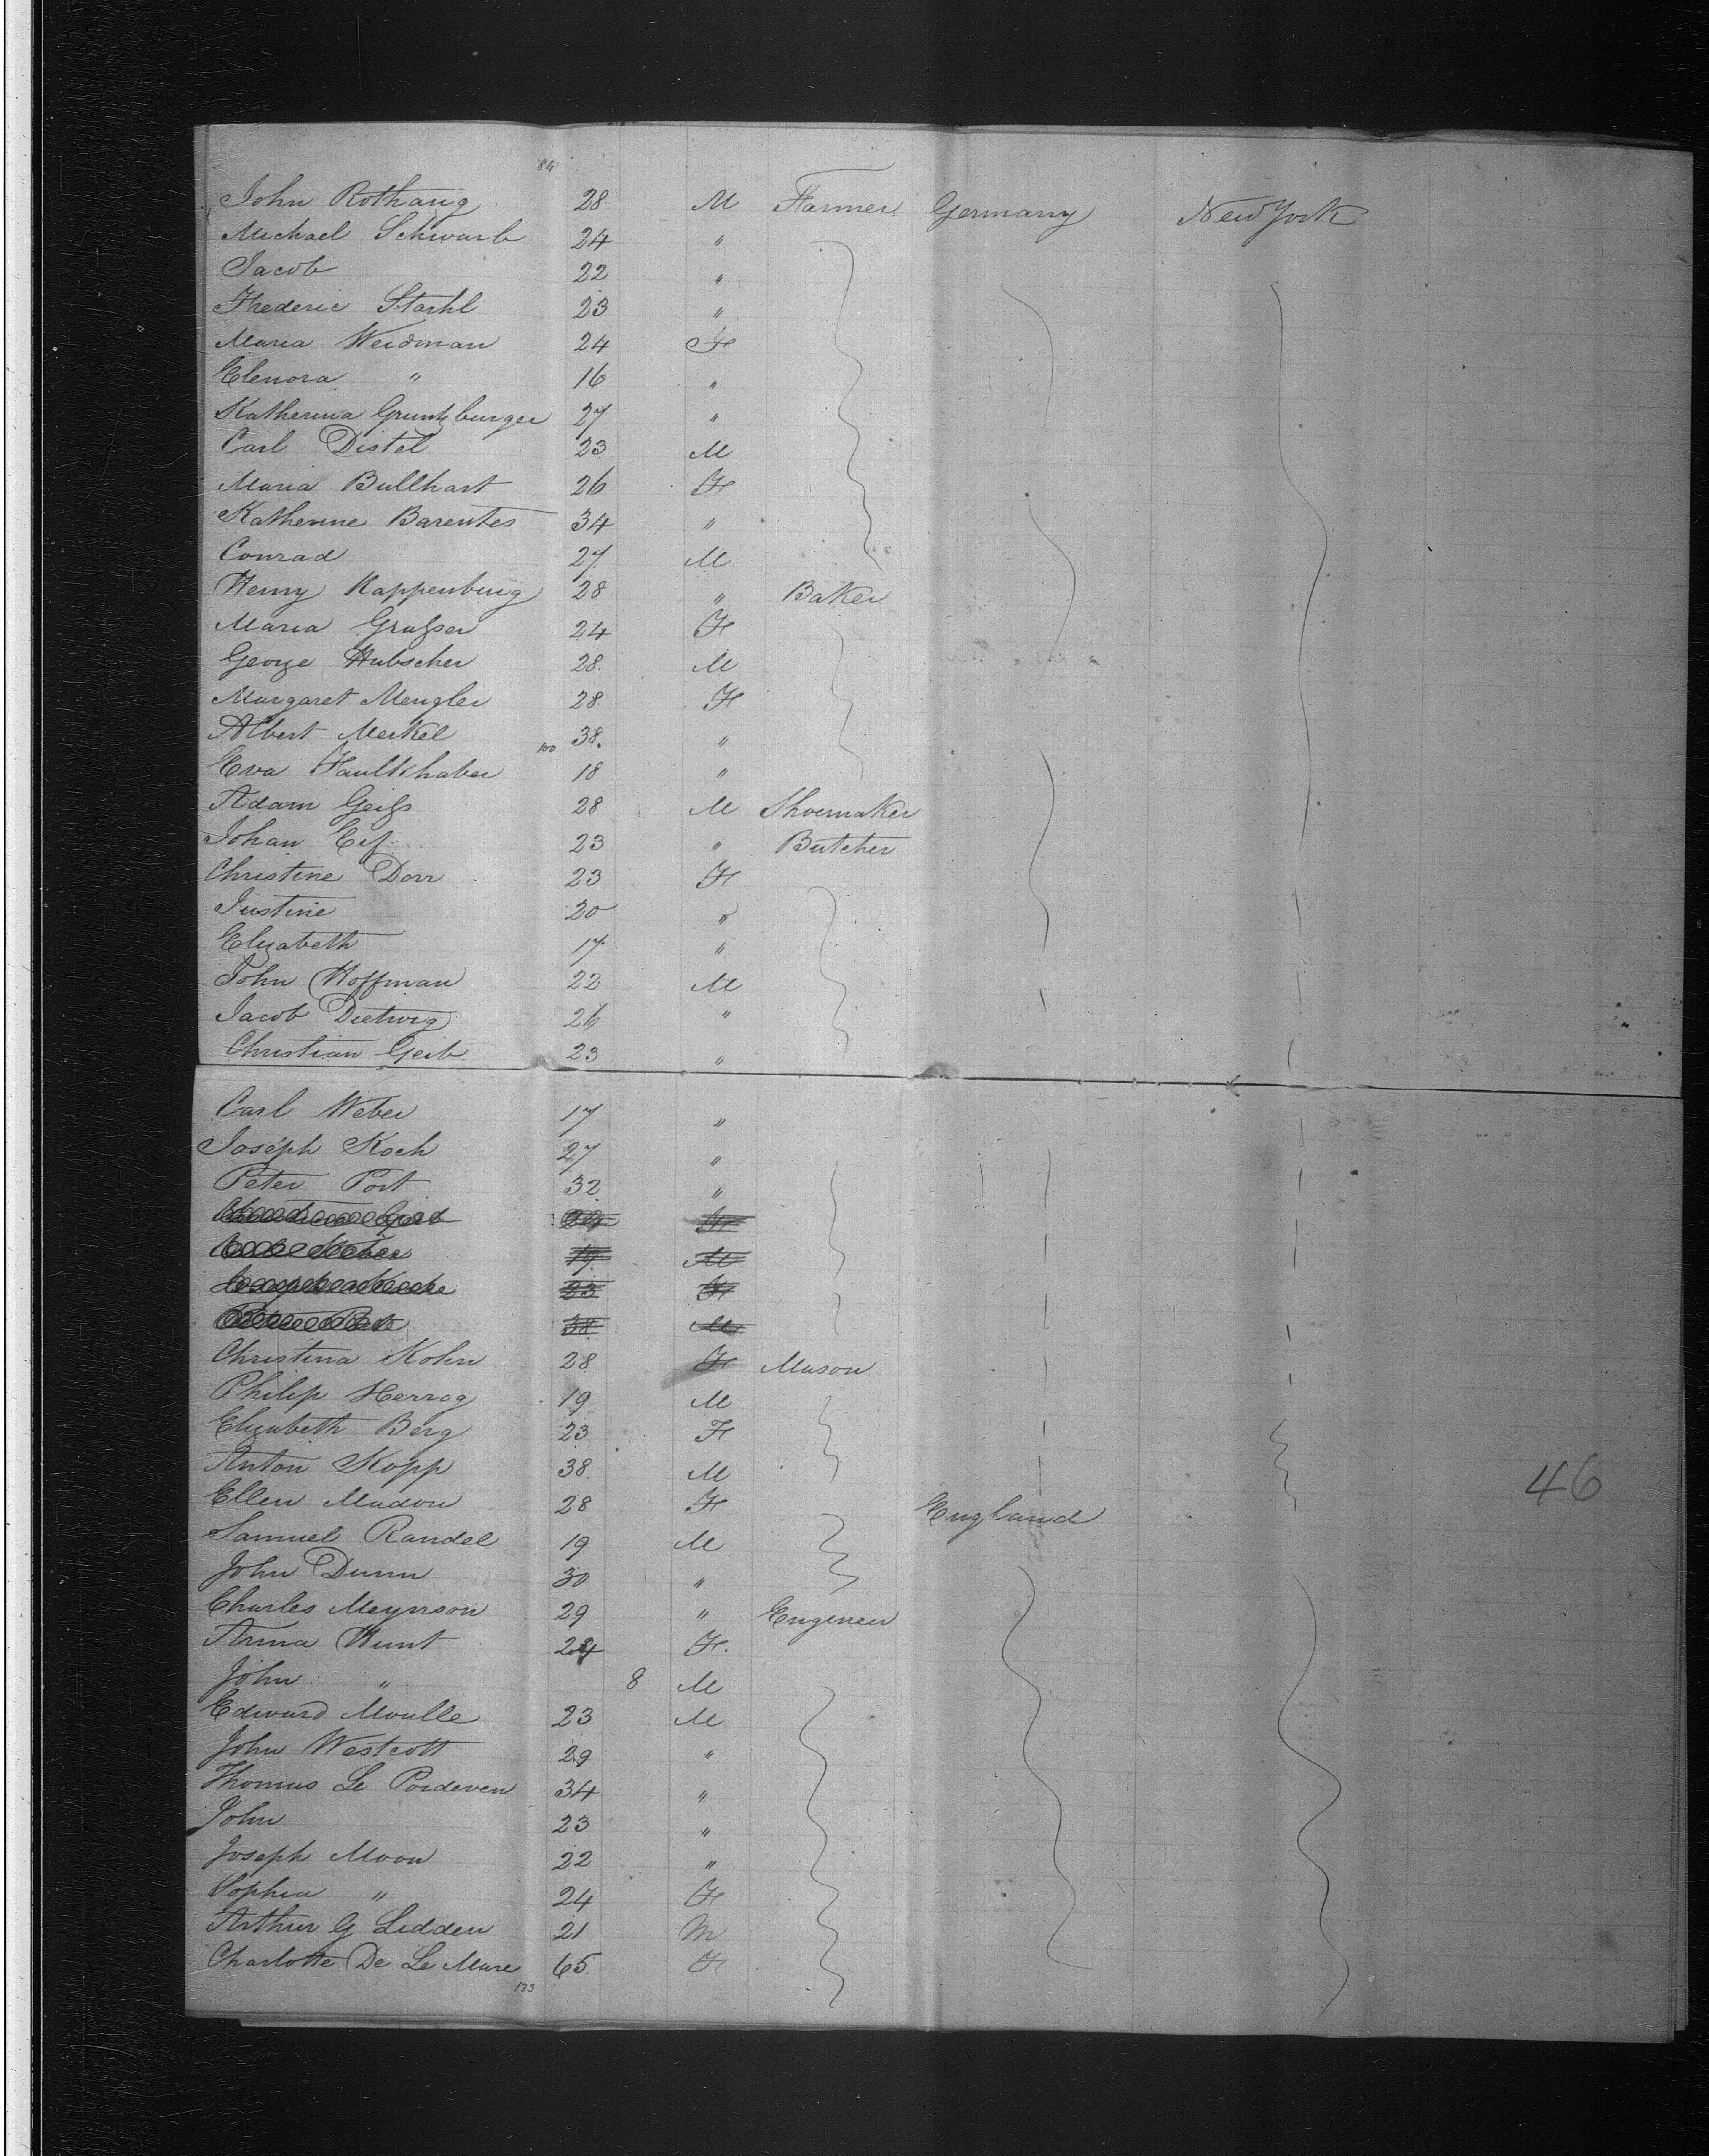 84
John Rothaug 28 M Farmer Germany New York
Michael Schwarb 24 "
Jacob 22 "
Frederic Stachl 23 "
Maria Weidman 24 F
Elenora " 16 "
Katherina Gruntzburger 27 "
Carl Distel 23 M
Maria Bullhart 26 F
Katherine Barentes 34 "
Conrad 27 M
Henry Kappenburg 28 " Baker
Maria Graſser 24 F
George Hubscher 28. M
Margaret Mengler 28. F
Albert Merkel 38. "
100
Eva Faulkhaber 18 "
Adam Geiſs 28 M Shoemaker
Johan 23 " Butcher
Christine Dorr 23 F
Justine 20 "
Elizabeth 17 "
John Hoffman 22 M
Jacob Dietwig 26 "
Christian Geib 23 "
Carl Weber 17 "
Joseph Koch 27 "
Peter Port 32 "
19 M
23 F
38 M
Christina Kohn 28 F Mason
Philip Herzog 19 M
Elizabeth Berg 23 F
Anton Kopp 38. M
46
Ellen Madon 28 F England
Samuel Randel 19 M
John Dunn 30 "
Charles Meynson 29 " Engineer
Anna Hunt 24 F.
John " 8 M
Edward Moulle 23 M
John Westcott 29 "
Thomas Le Poideven 34 "
John 23 "
Joseph Moon 22 "
Sophia " 24 F
Arthur G Ledden 21 M
Charlotte De Le Mare 65. F
133